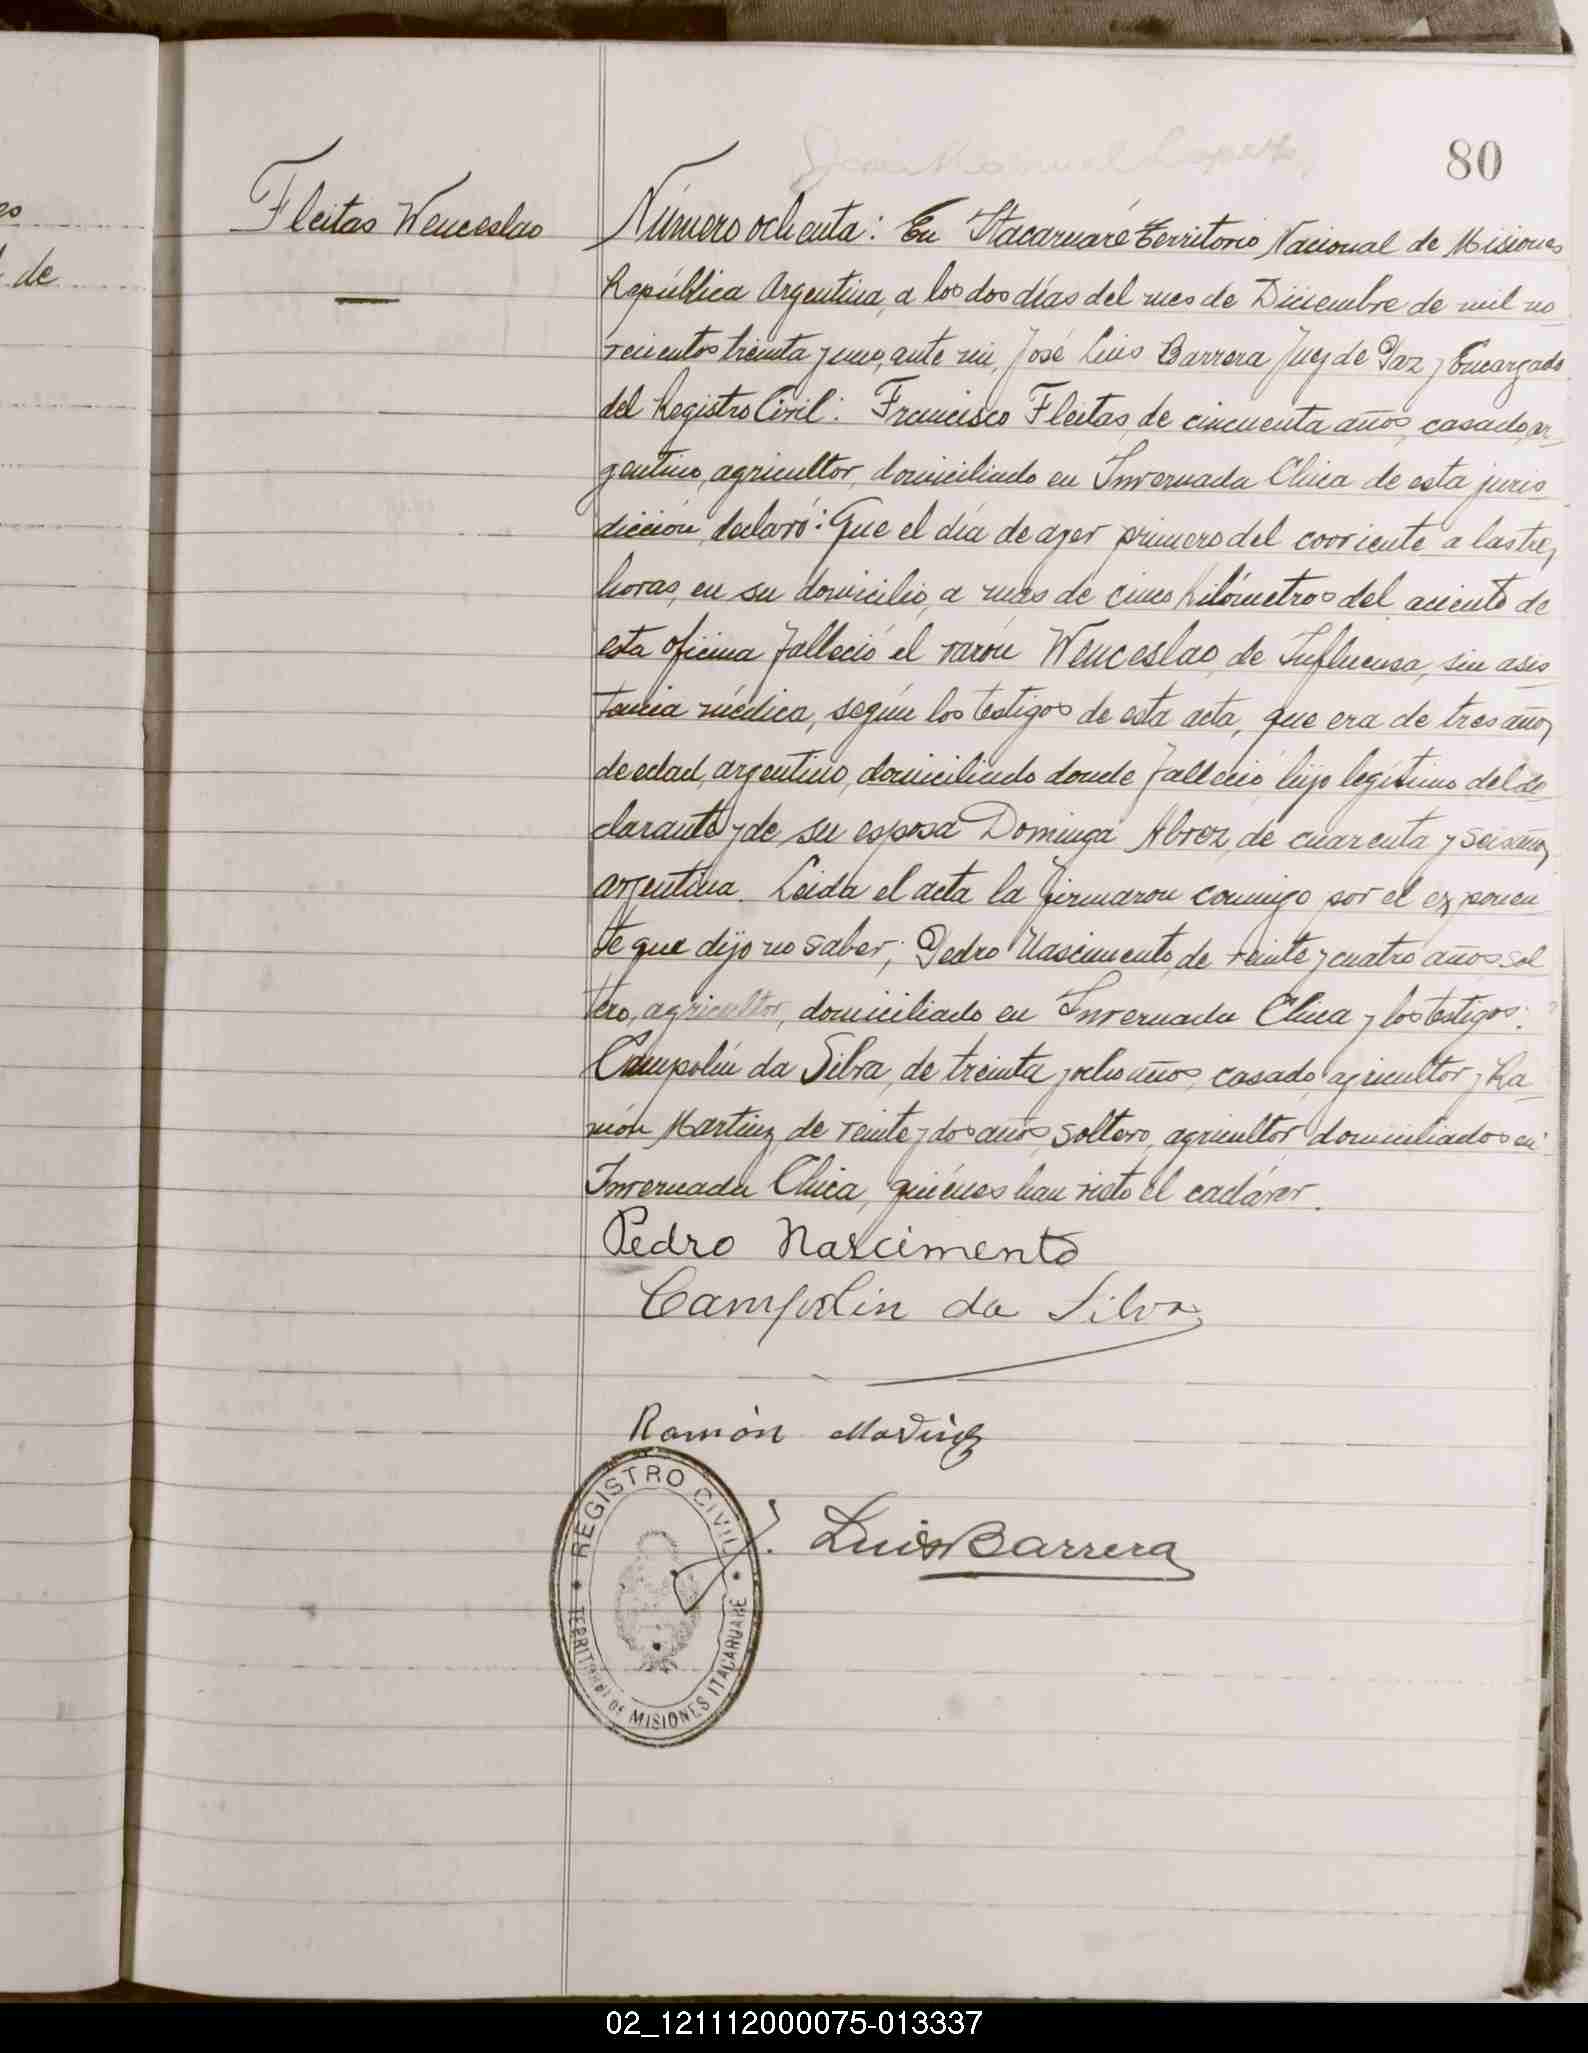 es
de
80
Fleitas Wenceslao
Número ochenta: En Itacaruaré Territorio Nacional de Misiones
República Argentina, a los dos días del mes de Diciembre de mil no
vecientos treinta y uno, ante mi, José Luis Barrera Juez de Paz y Encargado
del Registro Civil: Francisco Fleitas, de cincuenta años, casado, ar_
gentino, agricultor, domiciliado en Invernada Chica de esta juris_
dicción, declaró: Que el día de ayer primero del corriente a las tres
horas, en su domicilio, a mas de cinco kilómetros del aciento de
esta oficina falleció el varón Wenceslao, de Influensa, sin asis_
tencia médica, según los testigos de esta acta, que era de tres años
de edad, argentino, domiciliado donde falleció, hijo legítimo del de_
clarante y de su esposa Dominga Abrez, de cuarenta y seis años,
argentina. Leida el acta la firmaron conmigo por el exponen_
te que dijo no saber; Pedro Nascimento, de veinte y cuatro años, sol_
tero, agricultor, domiciliado en Invernada Chica y los testigos:
Campolin da Silva, de treinta y ocho años, casado, agricultor y Ra_
món Martinz, de veinte y dos años, soltero, agricultor, domiciliados en
Invernada Chica, quiénes han visto el cadáver.
Pedro Nascimento
Campolin da Silva
Ramón Martinz
J. Luis Barrera
REGISTRO CIVIL
TERRITORIO DE MISIONES ITACARUARE
02_121112000075-013337